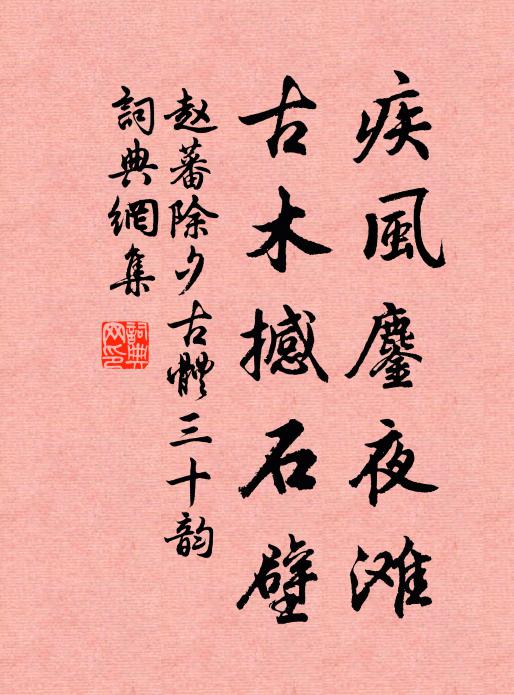 疾風鏖夜滩
古木撼石壁
赵蕃除夕古體三十韵
詞典網集
詞典网印